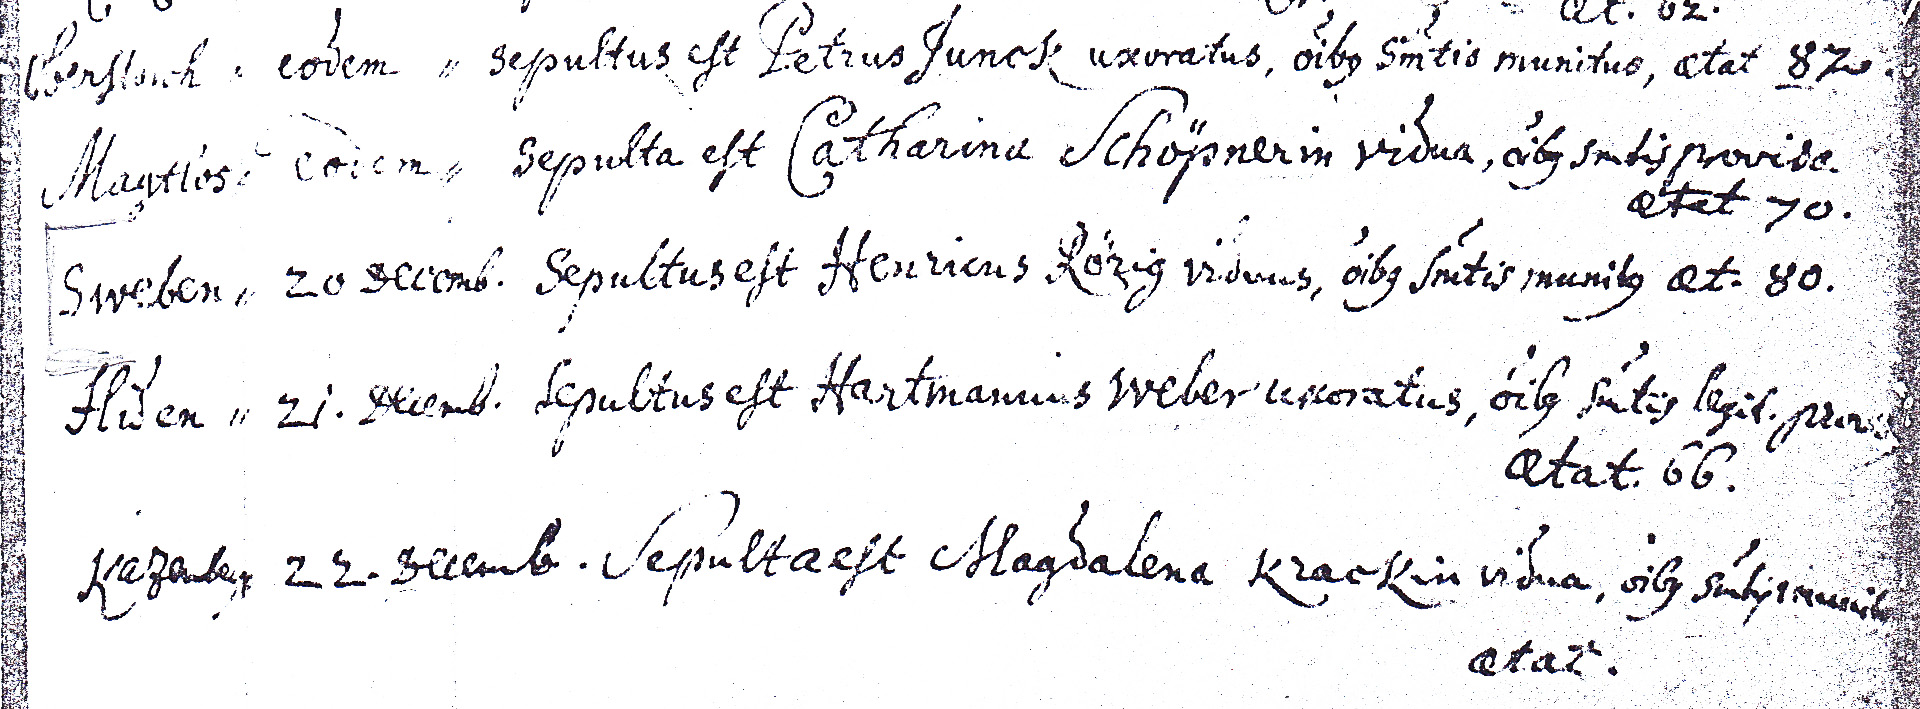 æt. 62.
eodem " sepultus est Petrus Junck uxoratus, oibg Smtis munitus, ætat 82.
Magtlos " eodem " sepulta est Catharina Schöpnerin vidua, oibg smtis provisa.
ætat 70.
Sweben " 20 Decemb. Sepultus est Henricus Rörig viduus, oibg Smtis munitg æt. 80.
Flieden " 21. Decemb. Sepultus est Hartmannus Weber uxoratus, oibg Smtis legit.
Ætat. 66.
22. Decemb. Sepulta est Magdalena Krackin vidua, oibg
ætat.